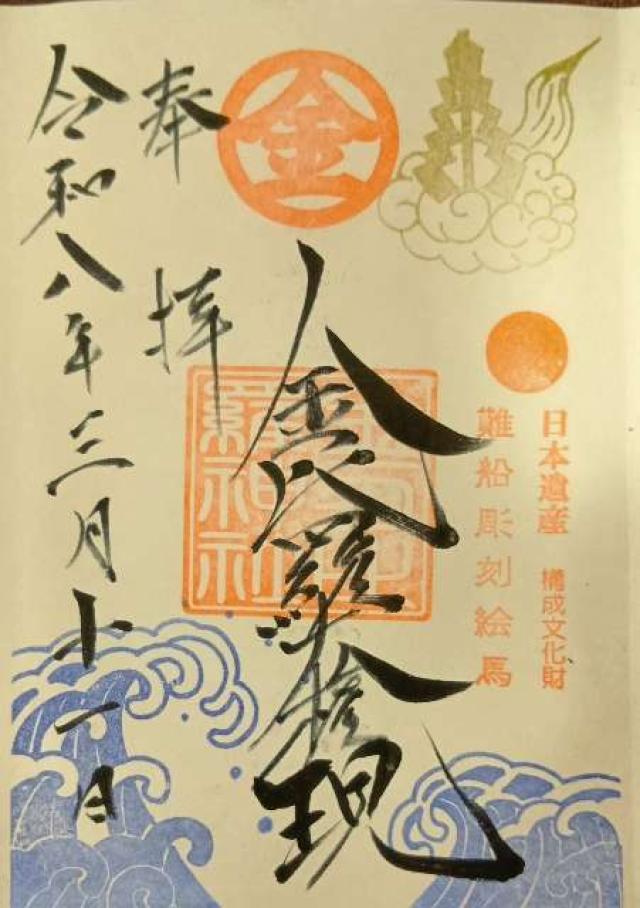 金
日本遺産 構成文化財
難船彫刻絵馬
金比羅大権現
奉拝
令和八年三月十一日